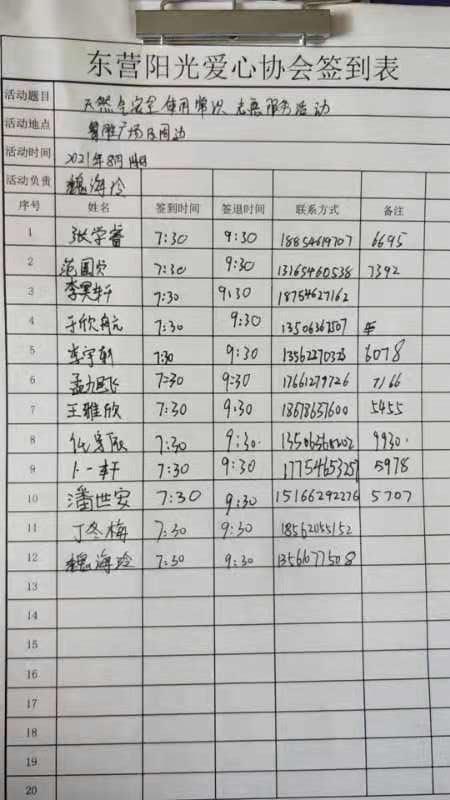 东营阳光爱心协会签到表
活动题目 天然气安全使用常识 志愿服务活动
活动地点 雪莲广场及周边
活动时间 2021年8月
活动负责 魏海玲
序号 姓名 签到时间 签退时间 联系方式 备注
1 张学睿 7:30 9:30 18854619707 6695
2 7:30 9:30 13165460538 7392
3 李昊轩 7:30 9:30 18754627162
4 于欣冉 7:30 9:30 13506367507
5 李宇轩 7:30 9:30 6078
6 7:30 9:30 17661279726 7166
7 王雅欣 7:30 9:30 18678657600 5455
8 7:30 9:30. 9930.
9 卜一轩 7:30 9:30 17754653257 5978
10 潘世安 7:30 9:30 15166292276 5707
11 丁冬梅 7:30 9:30 18562055152
12 魏海玲 7:30 9:30 13561077508
13
14
15
16
17
18
19
20